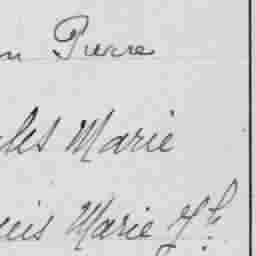 n Pierre
les Marie
uis Marie Jh